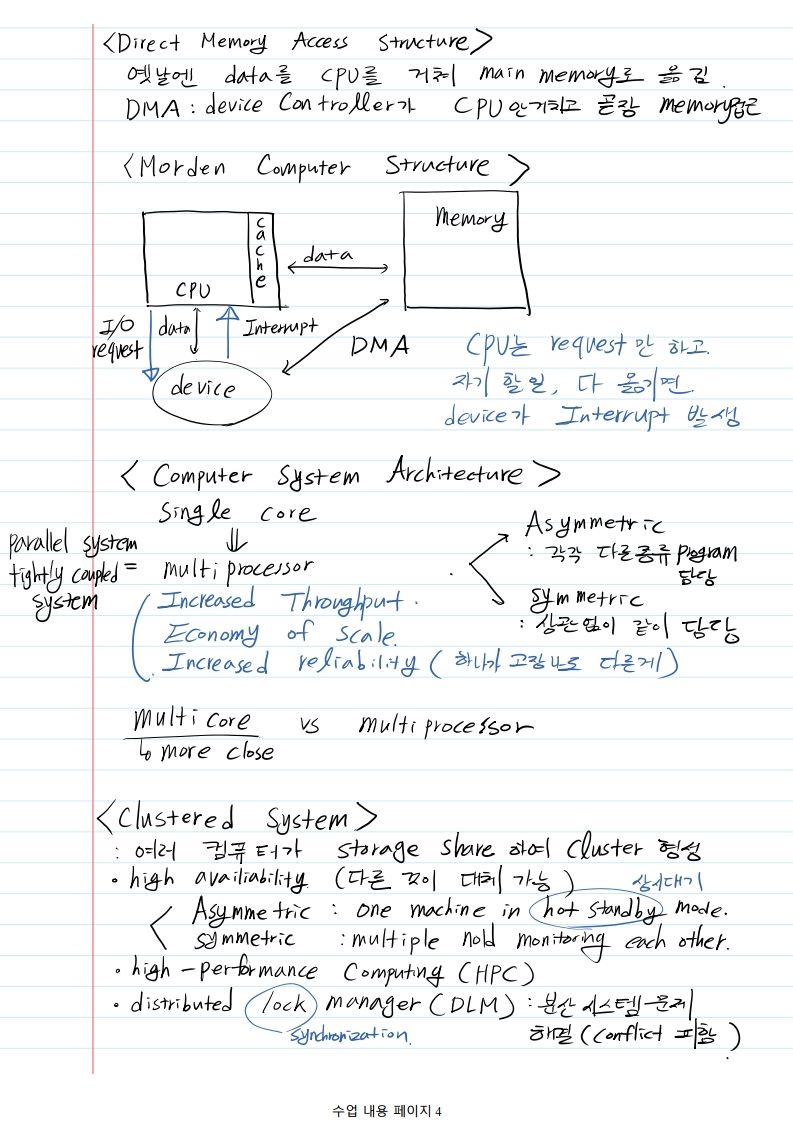 <Direct Memory Access Structure>
옛날엔 data를 CPU를 거쳐 main memory로 옮김.
DMA : device Controller가 CPU 안거치고 곧장 memory접근
<Morden Computer Structure>
cache
CPU
data
Memory
I/O request
data
Interrupt
device
DMA
CPU는 request만 하고
자기 할일, 다 옮기면
device가 Interrupt 발생
<Computer System Architecture>
Single core
parallel system
tightly coupled =
system
multi processor
Increased Throughput.
Economy of scale.
Increased reliability (하나가 고장나도 다른게)
Asymmetric
: 각각 다른종류 program
담당
symmetric
: 상관없이 같이 담당
multi core vs multi processor
↳ more close
<Clustered System>
: 여러 컴퓨터가 storage share 하여 Cluster 형성
• high availiability (다른 것이 대체 가능)
상시대기
Asymmetric : one machine in hot standby mode.
symmetric : multiple nold monitoring each other.
• high-performance Computing (HPC)
• distributed lock manager (DLM) : 분산 시스템 문제
해결 (conflict 포함)
synchronization.
수업 내용 페이지 4